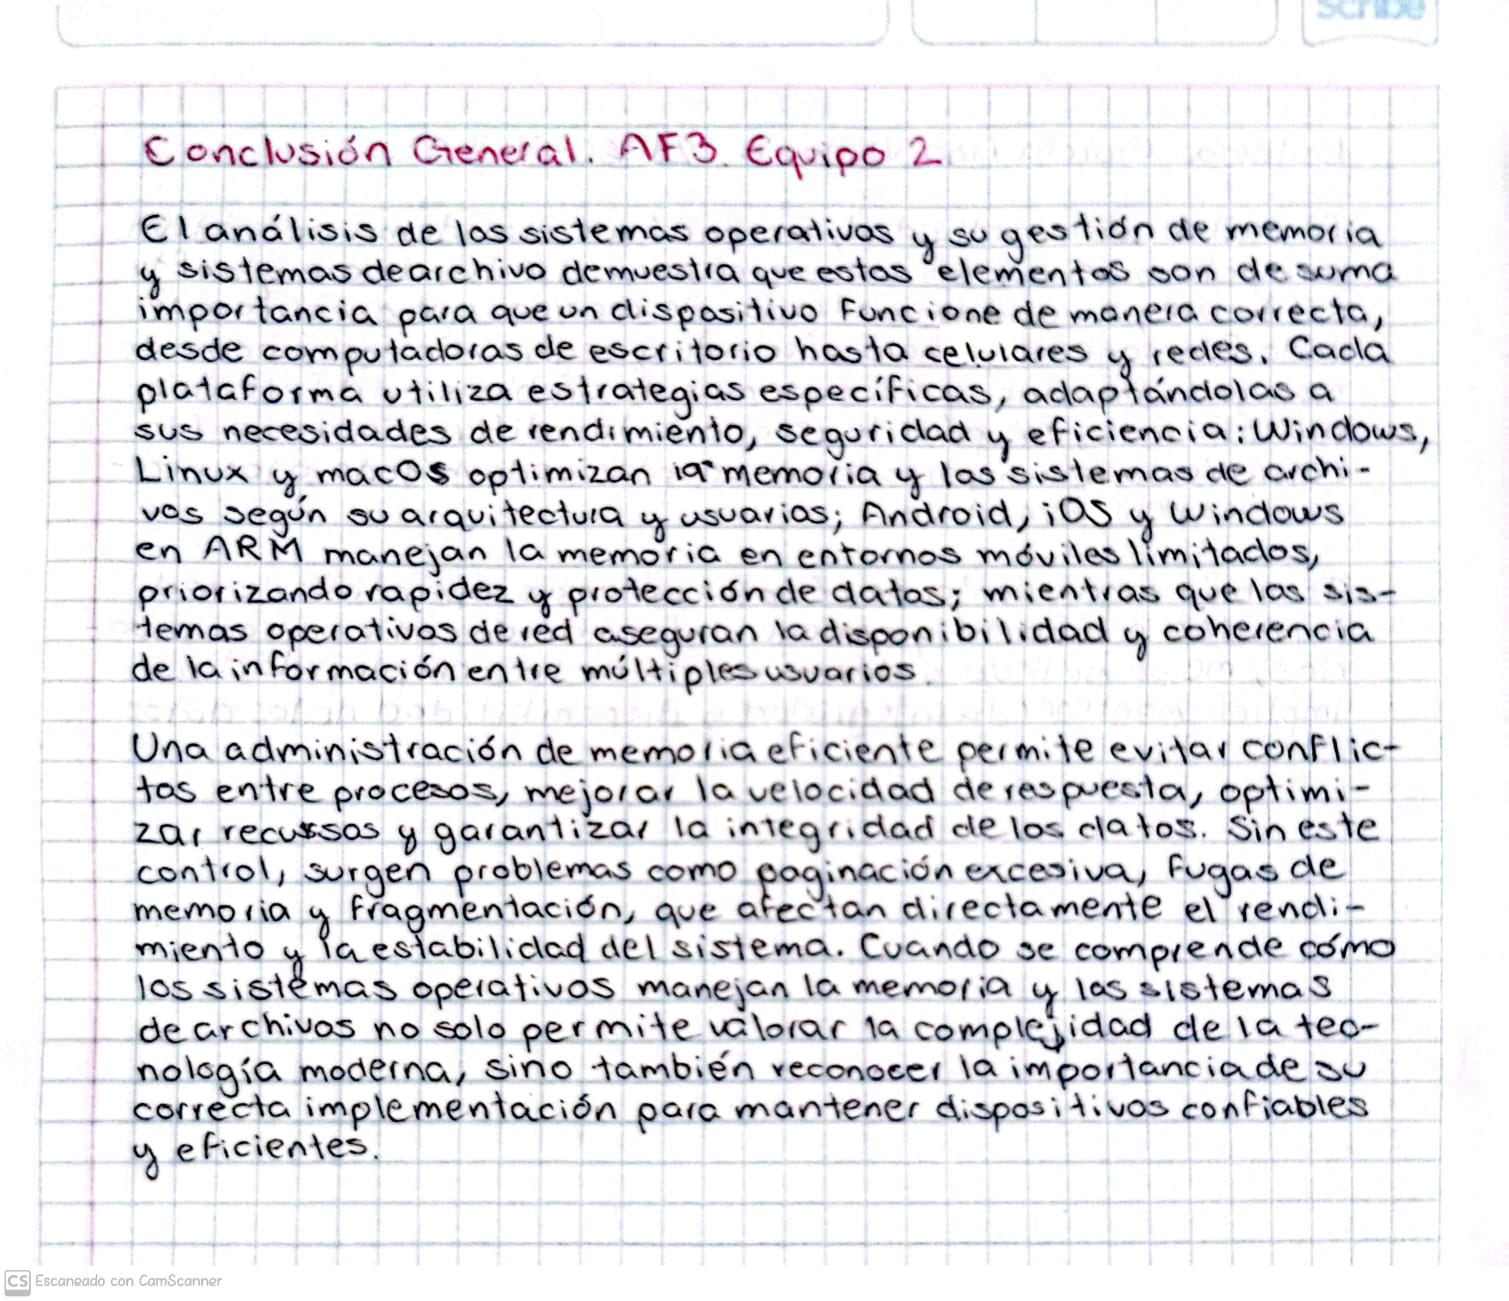 Scribe
Conclusión General. AF3. Equipo 2
El análisis de los sistemas operativos y su gestión de memoria
y sistemas de archivo demuestra que estos elementos son de suma
importancia para que un dispositivo funcione de manera correcta,
desde computadoras de escritorio hasta celulares y redes. Cada
plataforma utiliza estrategias específicas, adaptándolas a
sus necesidades de rendimiento, seguridad y eficiencia: Windows,
Linux y macOS optimizan la memoria y los sistemas de archi-
vos según su arquitectura y usuarios; Android, iOS y Windows
en ARM manejan la memoria en entornos móviles limitados,
priorizando rapidez y protección de datos; mientras que los sis-
temas operativos de red aseguran la disponibilidad y coherencia
de la información entre múltiples usuarios.
Una administración de memoria eficiente permite evitar conflic-
tos entre procesos, mejorar la velocidad de respuesta, optimi-
zar recursos y garantizar la integridad de los datos. Sin este
control, surgen problemas como paginación excesiva, fugas de
memoria y fragmentación, que afectan directamente el rendi-
miento y la estabilidad del sistema. Cuando se comprende cómo
los sistemas operativos manejan la memoria y los sistemas
de archivos no solo permite valorar la complejidad de la tec-
nología moderna, sino también reconocer la importancia de su
correcta implementación para mantener dispositivos confiables
y eficientes.
CS Escaneado con CamScanner